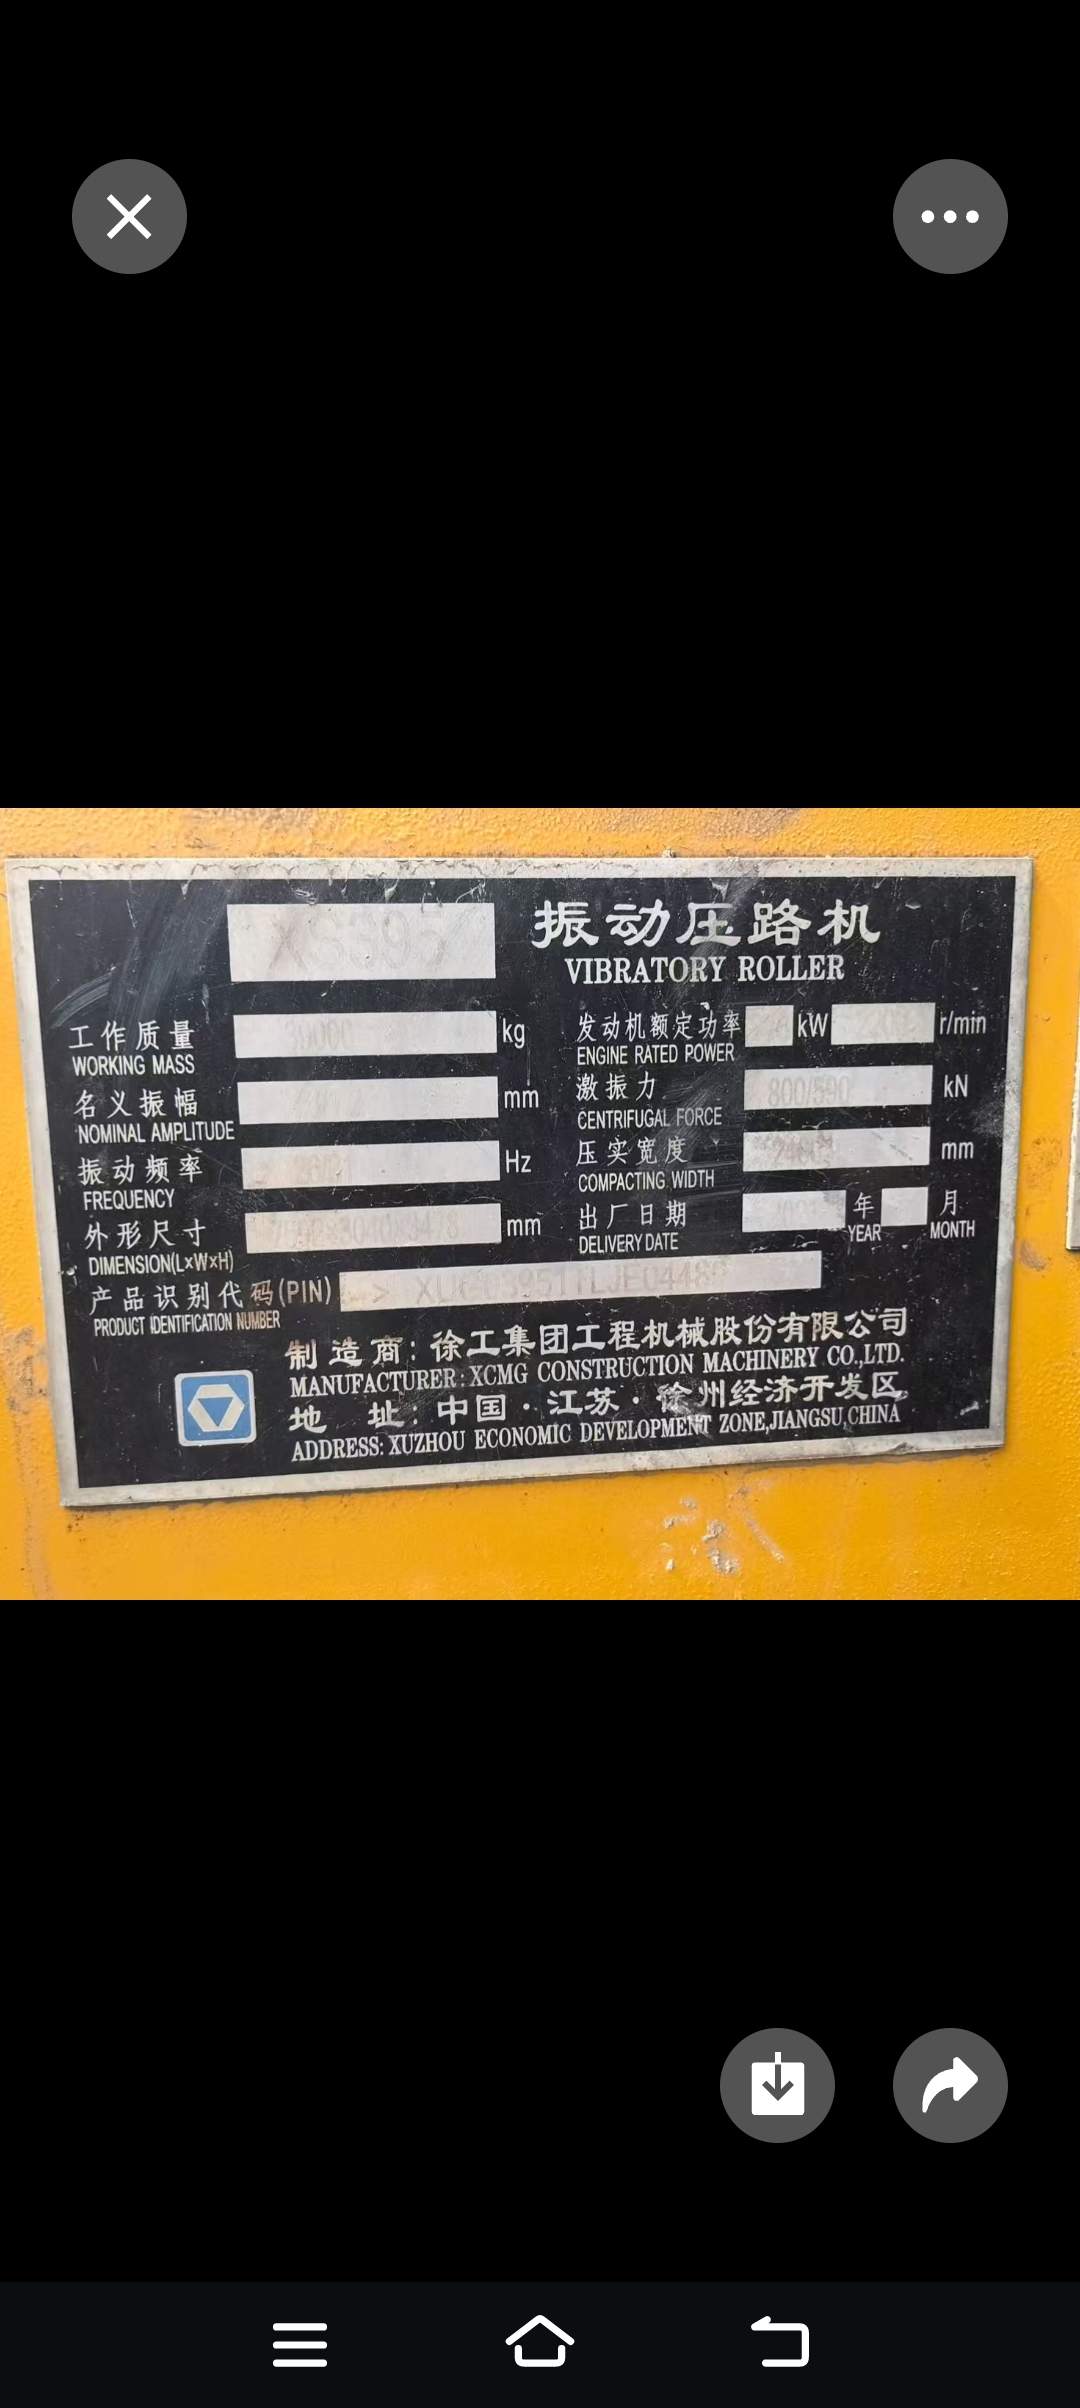 XS395
振动压路机
VIBRATORY ROLLER
工作质量 30000 kg
WORKING MASS
发动机额定功率 kW r/min
ENGINE RATED POWER
名义振幅 mm
NOMINAL AMPLITUDE
激振力 800/590 kN
CENTRIFUGAL FORCE
振动频率 Hz
FREQUENCY
压实宽度 mm
COMPACTING WIDTH
外形尺寸 mm
DIMENSION(L×W×H)
出厂日期 年 月
DELIVERY DATE YEAR MONTH
产品识别代码(PIN)
PRODUCT IDENTIFICATION NUMBER
制造商:徐工集团工程机械股份有限公司
MANUFACTURER:XCMG CONSTRUCTION MACHINERY CO.,LTD.
地址:中国·江苏·徐州经济开发区
ADDRESS: XUZHOU ECONOMIC DEVELOPMENT ZONE,JIANGSU,CHINA